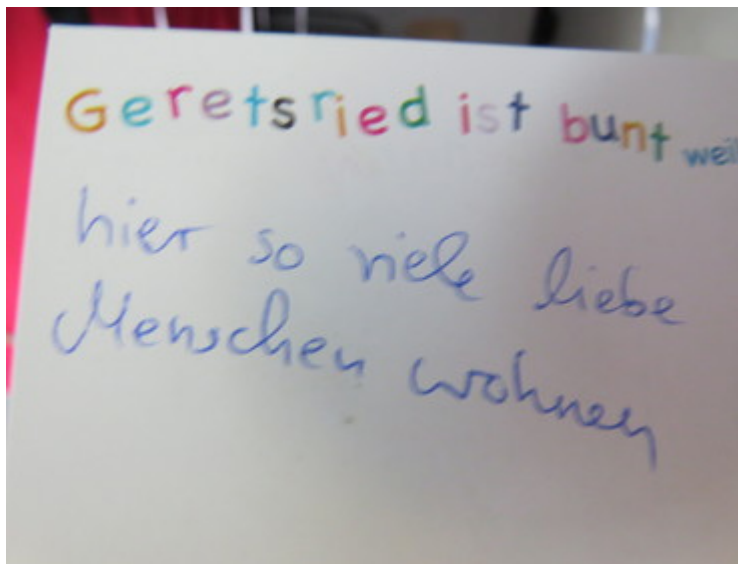 Geretsried ist bunt weil
hier so viele liebe
Menschen wohnen